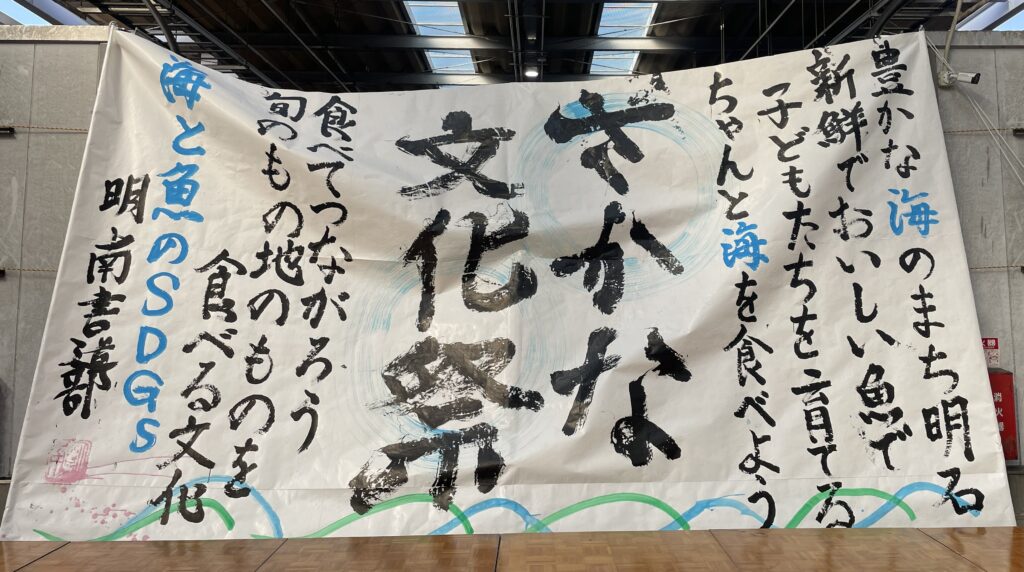 豊かな海のまち明石
新鮮でおいしい魚で
子どもたちを育てる
ちゃんと海を食べよう
さかな
文化祭
食べてつながろう
旬のもの地のものを
食べる文化
海と魚のSDGs
明南書道部
消火